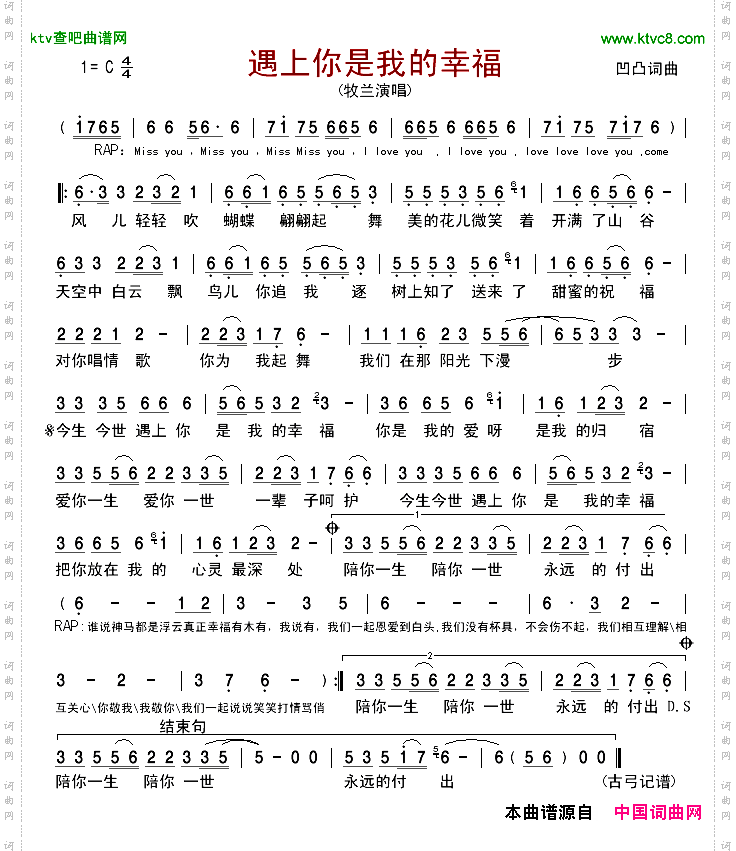 ktv查吧曲谱网
www.ktvc8.com
1= C 4/4
遇上你是我的幸福
凹凸词曲
(牧兰演唱)
( 1765 | 6 6 56· 6 | 71 75 665 6 | 665 6 665 6 | 71 75 717 6 |
RAP：Miss you ，Miss you ，Miss Miss you，I love you ，I love you，love love love you ,come
6·3 3 2321 | 661 65 565 3 | 55 535 6 1 | 166 56 6 - |
风 儿 轻轻 吹 蝴蝶 翩翩起 舞 美的花儿微笑 着 开满 了山 谷
6 3 3 223 1 | 661 65 565 3 | 55 35 6 1 | 166 56 6 - |
天空中 白云 飘 鸟儿 你追 我 逐 树上知了 送来 了 甜蜜的祝 福
2 2 2 1 2 - | 2 2 3 1 7 6 - | 1 1 1 6 2 3 5 5 6 | 6 5 3 3 3 - |
对你唱情 歌 你为 我起 舞 我们 在那 阳光 下漫 步
3 3 3 5 6 6 6 | 5 6 5 3 2 3 - | 3 6 6 5 6 1 | 1 6 1 2 3 2 - |
今生 今世 遇上 你 是 我 的幸 福 你是 我的 爱 呀 是我 的归 宿
3 3 5 5 6 2 2 3 3 5 | 2 2 3 1 7 6 6 | 3 3 3 5 6 6 6 | 5 6 5 3 2 3 - |
爱你一生 爱你 一世 一辈 子呵 护 今生今世 遇上 你 是 我的幸 福
1
3 6 6 5 6 1 | 1 6 1 2 3 2 - | 3 3 5 5 6 2 2 3 3 5 | 2 2 3 1 7 6 6 |
把你放在 我 的 心灵 最深 处 陪你一生 陪你 一世 永远 的 付出
( 6 - - 1 2 | 3 - 3 5 | 6 - - 5 6 | 6 · 3 2 - |
RAP:谁说神马都是浮云真正幸福有木有，我说有，我们一起恩爱到白头,我们没有杯具，不会伤不起，我们相互理解\相
2
3 - 2 - | 3 7 6 - ) :| 3 3 5 5 6 2 2 3 3 5 | 2 2 3 1 7 6 6 |
互关心\你敬我\我敬你\我们一起说说笑笑打情骂俏 陪你一生 陪你 一世 永远 的 付出 D.S
结束句
3 3 5 5 6 2 2 3 3 5 | 5 - 0 0 | 5 3 5 1 7 6 - | 6 ( 5 6 ) 0 0 |
陪你一生 陪你 一世 永远的付 出 (古弓记谱)
本曲谱源自 中国词曲网